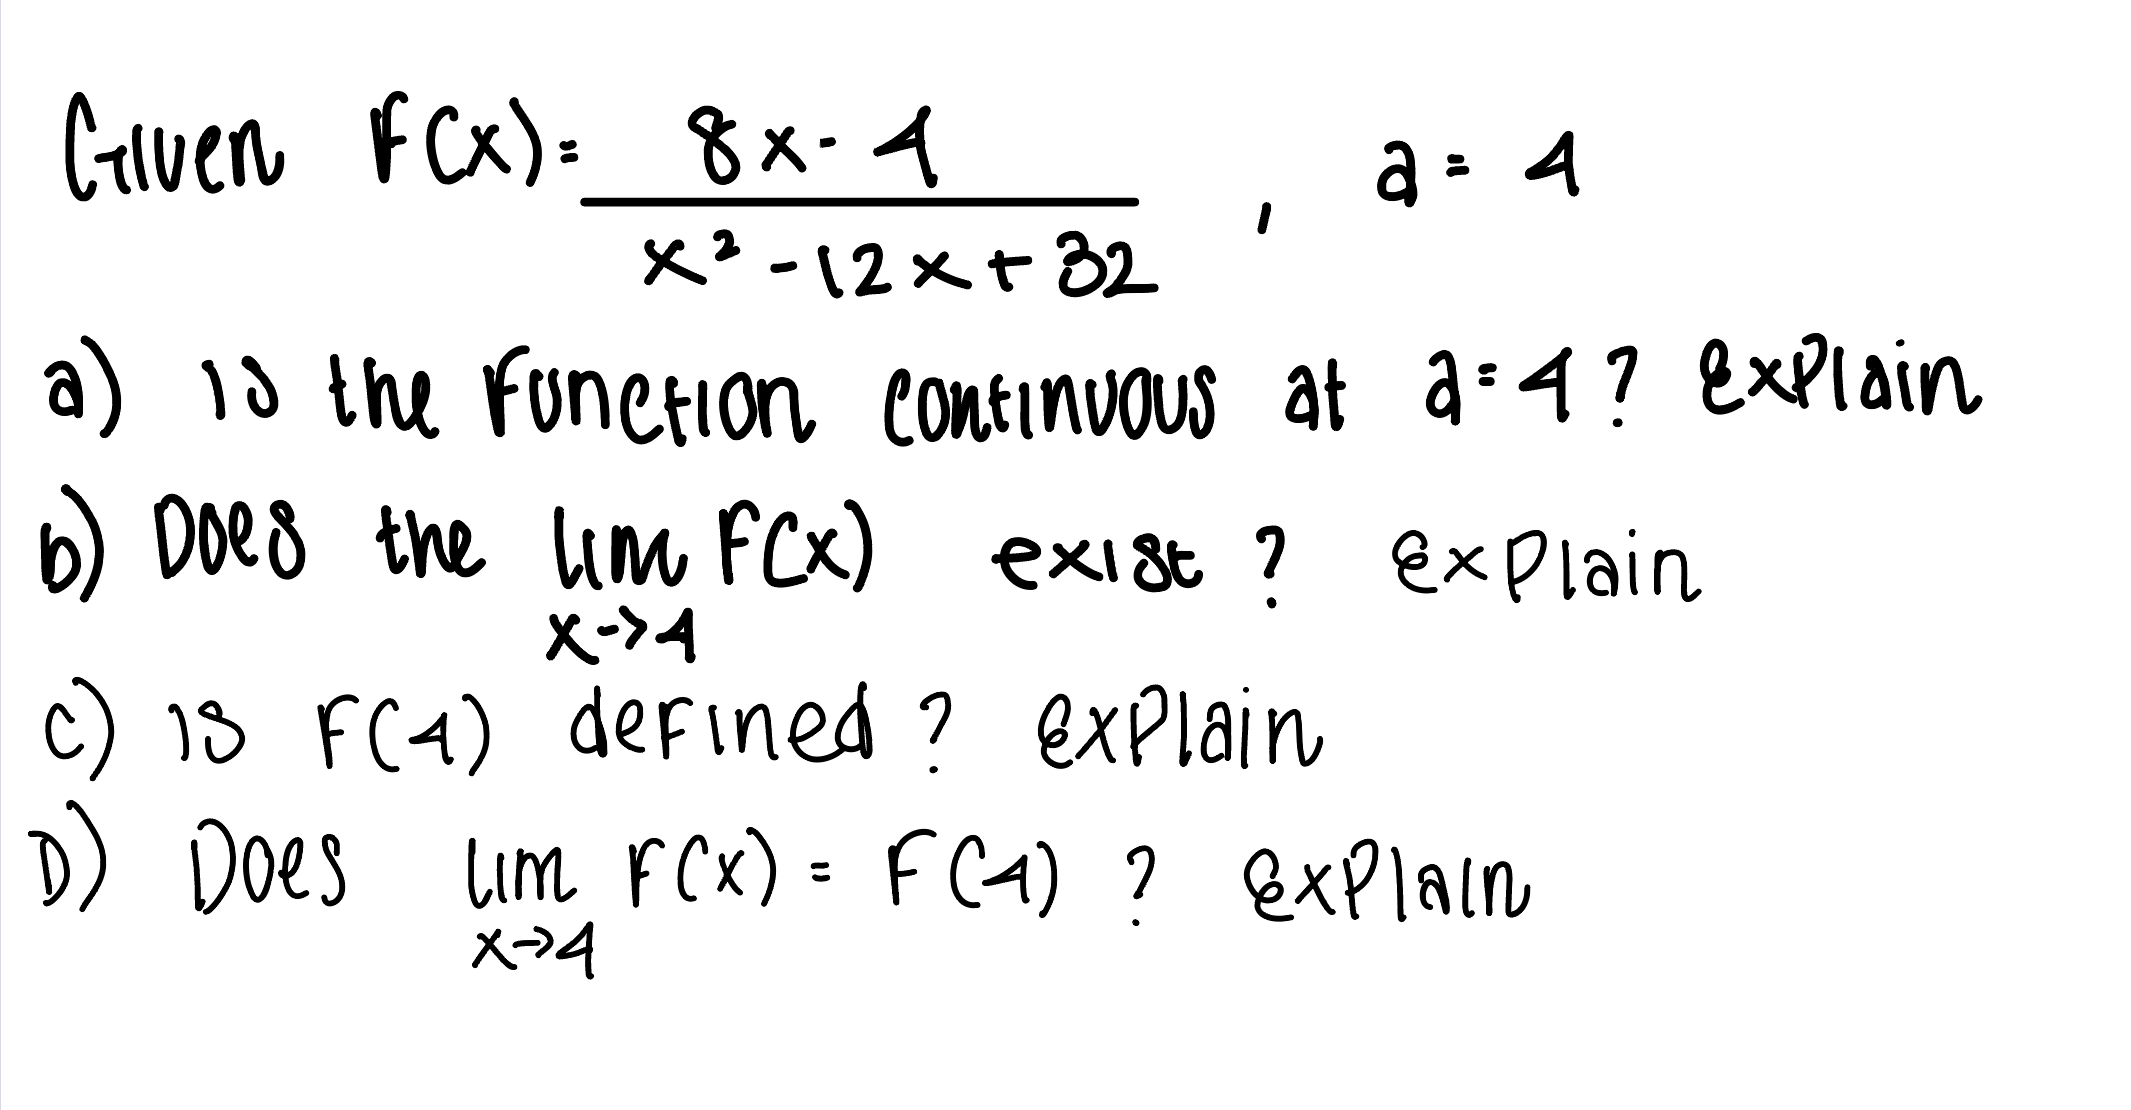 Given F(x) = 8x - 4 , a = 4
x² - 12x + 32
a) is the function continuous at a = 4? Explain
b) Does the lim F(x) exist? Explain
x->4
c) is F(4) defined? Explain
D) Does lim F(x) = F(4)? Explain
x->4